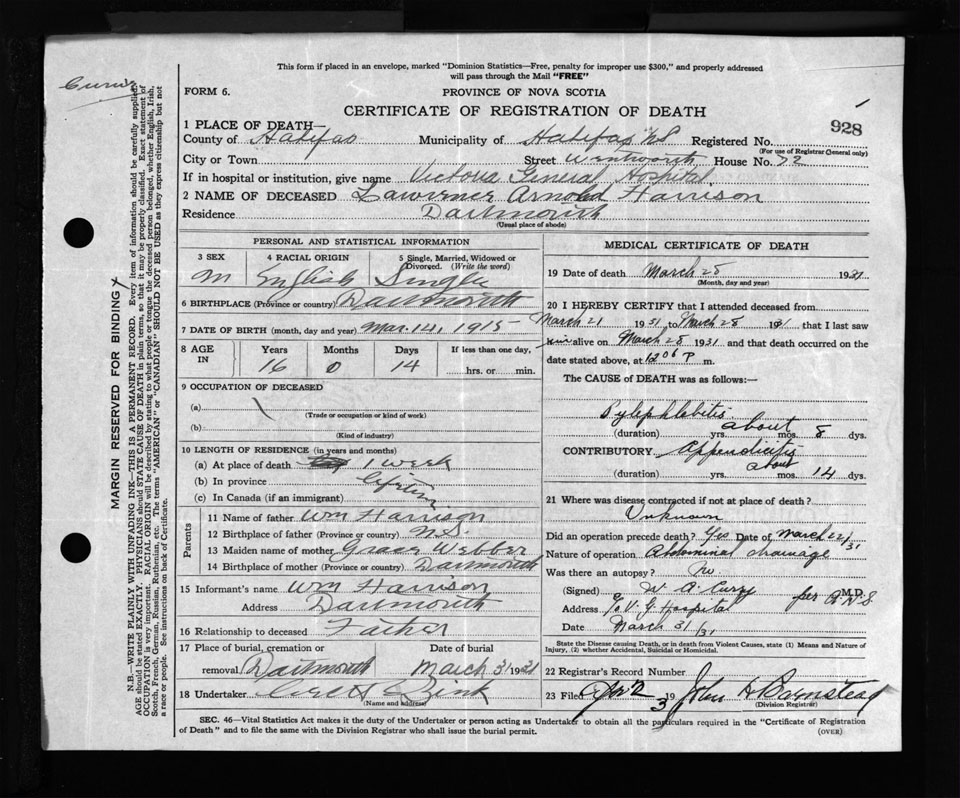 This form if placed in an envelope, marked "Dominion Statistics—Free, penalty for improper use $300," and properly addressed
will pass through the Mail "FREE"
FORM 6.
PROVINCE OF NOVA SCOTIA
CERTIFICATE OF REGISTRATION OF DEATH
928
1 PLACE OF DEATH—
County of Halifax Municipality of Halifax NS Registered No.
(For use of Registrar General only)
City or Town Street Wentworth House No. 72
If in hospital or institution, give name Victoria General Hospital
2 NAME OF DECEASED Lawrence Arnold Harrison
Residence Dartmouth
(Usual place of abode)
PERSONAL AND STATISTICAL INFORMATION
3 SEX 4 RACIAL ORIGIN 5 Single, Married, Widowed or Divorced. (Write the word)
M English Single
6 BIRTHPLACE (Province or country) Dartmouth
7 DATE OF BIRTH (month, day and year) Mar. 14, 1915
8 AGE IN Years Months Days If less than one day,
16 0 14 hrs. or min.
9 OCCUPATION OF DECEASED
(a)
(Trade or occupation or kind of work)
(b)
(Kind of industry)
10 LENGTH OF RESIDENCE (in years and months)
(a) At place of death 1 week
(b) In province lifetime
(c) In Canada (if an immigrant)
Parents
11 Name of father Wm Harrison
12 Birthplace of father (Province or country) N.S.
13 Maiden name of mother Grace Webber
14 Birthplace of mother (Province or country) Dartmouth
15 Informant's name Wm Harrison
Address Dartmouth
16 Relationship to deceased Father
17 Place of burial, cremation or removal Dartmouth Date of burial March 31 1931
18 Undertaker Zink
(Name and address)
MEDICAL CERTIFICATE OF DEATH
19 Date of death March 28 1931
(Month, day and year)
20 I HEREBY CERTIFY that I attended deceased from
March 21 1931 to March 28 1931 that I last saw
him alive on March 28 1931 and that death occurred on the
date stated above, at 1206 P m.
The CAUSE of DEATH was as follows:—
Pylephlebitis
(duration) yrs. about mos. 8 dys.
CONTRIBUTORY Appendicitis
(duration) yrs. about mos. 14 dys.
21 Where was disease contracted if not at place of death?
Unknown
Did an operation precede death? Yes Date of March 22/31
Nature of operation Abdominal drainage
Was there an autopsy? No.
(Signed) W. A. Curry per M.D.
Address V G Hospital
Date March 31/31
State the Disease causing Death, or in death from Violent Causes, state (1) Means and Nature of
Injury, (2) whether Accidental, Suicidal or Homicidal.
22 Registrar's Record Number
23 Filed Apr 2 193 John H Barnstead
(Division Registrar)
SEC. 46—Vital Statistics Act makes it the duty of the Undertaker or person acting as Undertaker to obtain all the particulars required in the "Certificate of Registration
of Death" and to file the same with the Division Registrar who shall issue the burial permit.
(OVER)
MARGIN RESERVED FOR BINDING
N.B.—WRITE PLAINLY WITH UNFADING INK—THIS IS A PERMANENT RECORD. Every item of information should be carefully supplied.
AGE should be stated EXACTLY. PHYSICIANS should STATE CAUSE OF DEATH in plain terms, so that it may be properly classified. Exact statement of
OCCUPATION is very important. RACIAL ORIGIN will be described by stating to what people or tongue the deceased person belonged, whether English, Irish,
Scotch, French, German, Russian, Ruthenian, etc. The terms "AMERICAN" or "CANADIAN" SHOULD NOT BE USED as they express citizenship but not
a race or people. See instructions on back of Certificate.